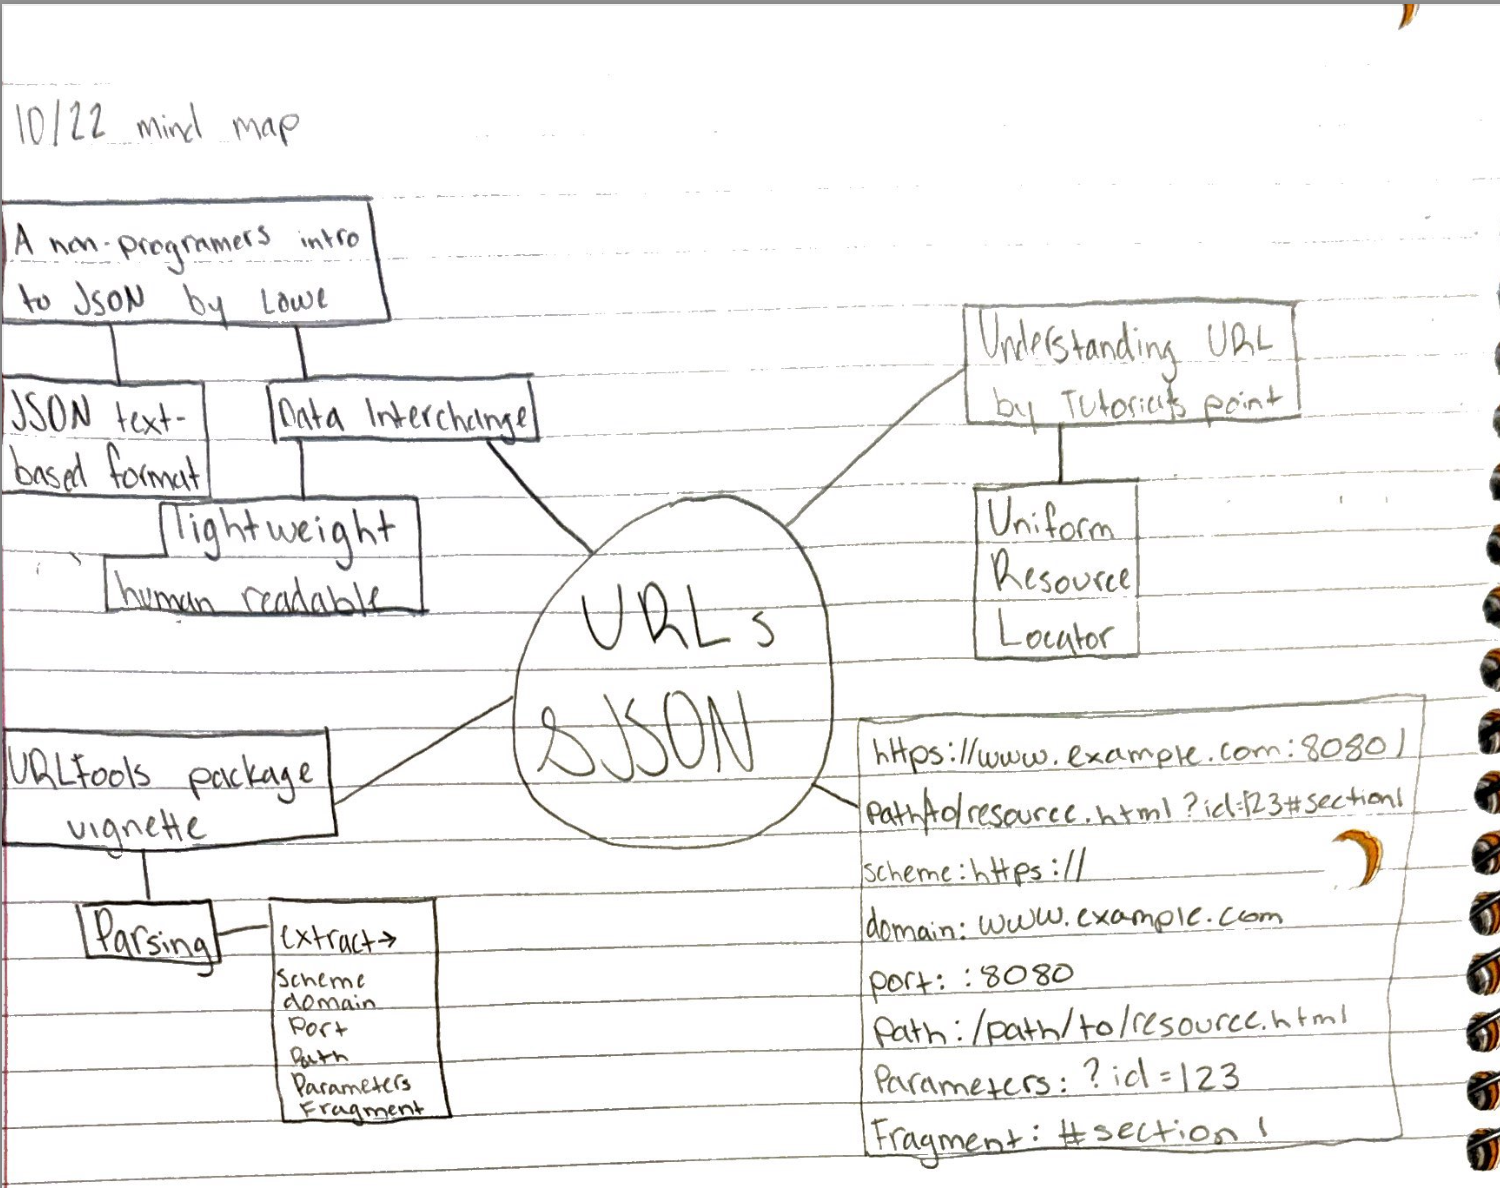 10/22 mind map
A non-programers intro
to JSON by Lowe
JSON text-
based format
Data Interchange
lightweight
human readable
Understanding URL
by Tutorials point
Uniform
Resource
Locator
URLs
& JSON
URLTools package
vignette
Parsing
extract→
scheme
domain
Port
Path
Parameters
Fragment
https://www.example.com:8080/
path/to/resource.html?id=123#section1
scheme: https://
domain: www.example.com
port: :8080
Path: /path/to/resource.html
Parameters: ?id=123
Fragment: #section1